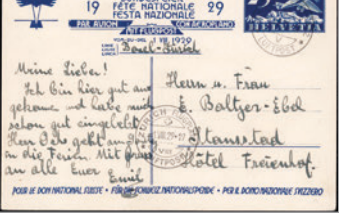 FÊTE NATIONALE
19 FESTA NAZIONALE 29
PAR AVION CON AEROPLANO
MIT FLUGPOST
1 VIII 1929
Basel-Zürich
HELVETIA
Meine Lieben!
Ich bin hier gut an-
gekommen und habe mich
schon gut eingelebt.
Herr geht
in die Ferien. Mit Gruss
an alle Euer
Emil
Herrn u. Frau
E. Baltzer-Ebel
Stansstad
Hôtel Freienhof.
ZÜRICH
LUFTPOST
POUR LE DON NATIONAL SUISSE · FÜR DIE SCHWEIZ. NATIONALSPENDE · PER IL DONO NAZIONALE SVIZZERO